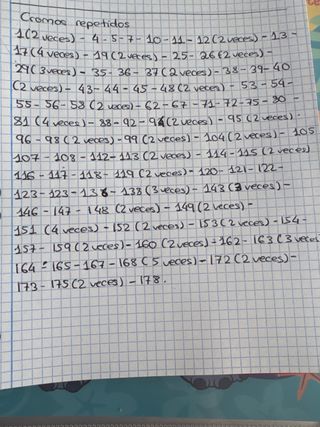 Cromos repetidos
1(2 veces) - 4 - 5 - 7 - 10 - 11 - 12 (2 veces) - 13 -
17 (4 veces) - 19 (2 veces) - 25 - 26 (2 veces) -
29 (3 veces) - 35 - 36 - 37 (2 veces) - 38 - 39 - 40
(2 veces) - 43 - 44 - 45 - 48 (2 veces) - 53 - 54 -
55 - 56 - 58 (2 veces) - 62 - 67 - 71 - 72 - 75 - 80 -
81 (4 veces) - 88 - 92 - 94 (2 veces) - 95 (2 veces) -
96 - 98 (2 veces) - 99 (2 veces) - 104 (2 veces) - 105
107 - 108 - 112 - 113 (2 veces) - 114 - 115 (2 veces)
116 - 117 - 118 - 119 (2 veces) - 120 - 121 - 122 -
123 - 123 - 136 - 138 (3 veces) - 143 (3 veces) -
146 - 147 - 148 (2 veces) - 149 (2 veces) -
151 (4 veces) - 152 (2 veces) - 153 (2 veces) - 154 -
157 - 159 (2 veces) - 160 (2 veces) - 162 - 163 (3 veces
164 - 165 - 167 - 168 (5 veces) - 172 (2 veces) -
173 - 175 (2 veces) - 178.